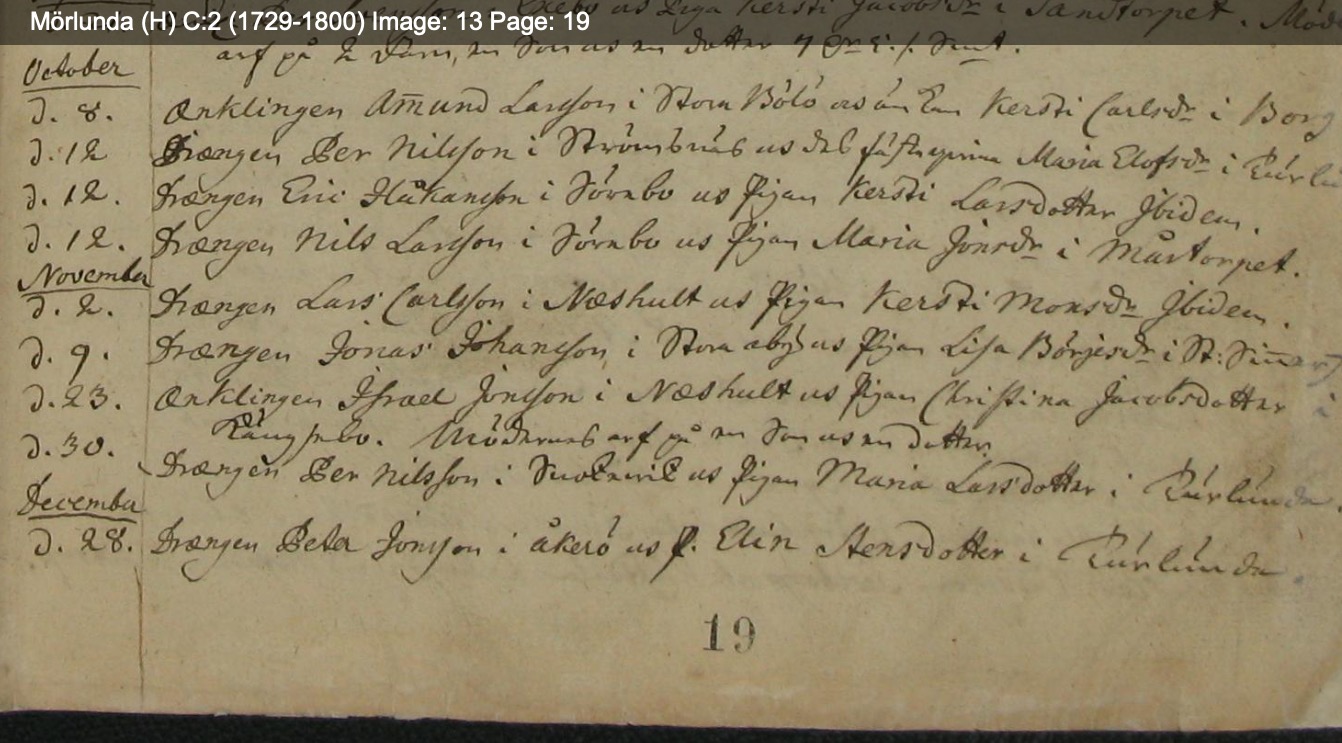 Mörlunda (H) C:2 (1729-1800) Image: 13 Page: 19
i Ekebo us Piga Kersti Jacobsdr i Sandtorpet. Möd
arf på 2 Barn, en Son us en dotter
October
d. 8. Ænklingen Am̄und Larsson i Stora Bölö us Kersti Carlsdr i Borg
d. 12 Drængen Per Nilsson i Strömsnäs us des fästeqvinna Maria Elofsdr i
d. 12. Drængen Eric Håkansson i Sörnbo us Pigan Kersti Larsdotter Jbidem.
d. 12. Drængen Nils Larsson i Sörnbo us Pigan Maria Jonsdr i Mårtorpet.
November
d. 2. Drængen Lars Carlsson i Næshult us Pigan Kersti Monsdr Jbidem.
d. 9. Drængen Jonas Johansson i Stora åby us Pigan Lisa Börjesdr i St:
d. 23. Ænklingen Israel Jonsson i Næshult us Pigan Christina Jacobsdotter i
Mödernes arf på en Son us en dotter.
d. 30. Drængen Per Nilsson i us Pigan Maria Larsdotter i Rurlunda.
December
d. 28. Drængen Peter Jonsson i åkerö us p. Elin Stensdotter i Rurlunda.
19